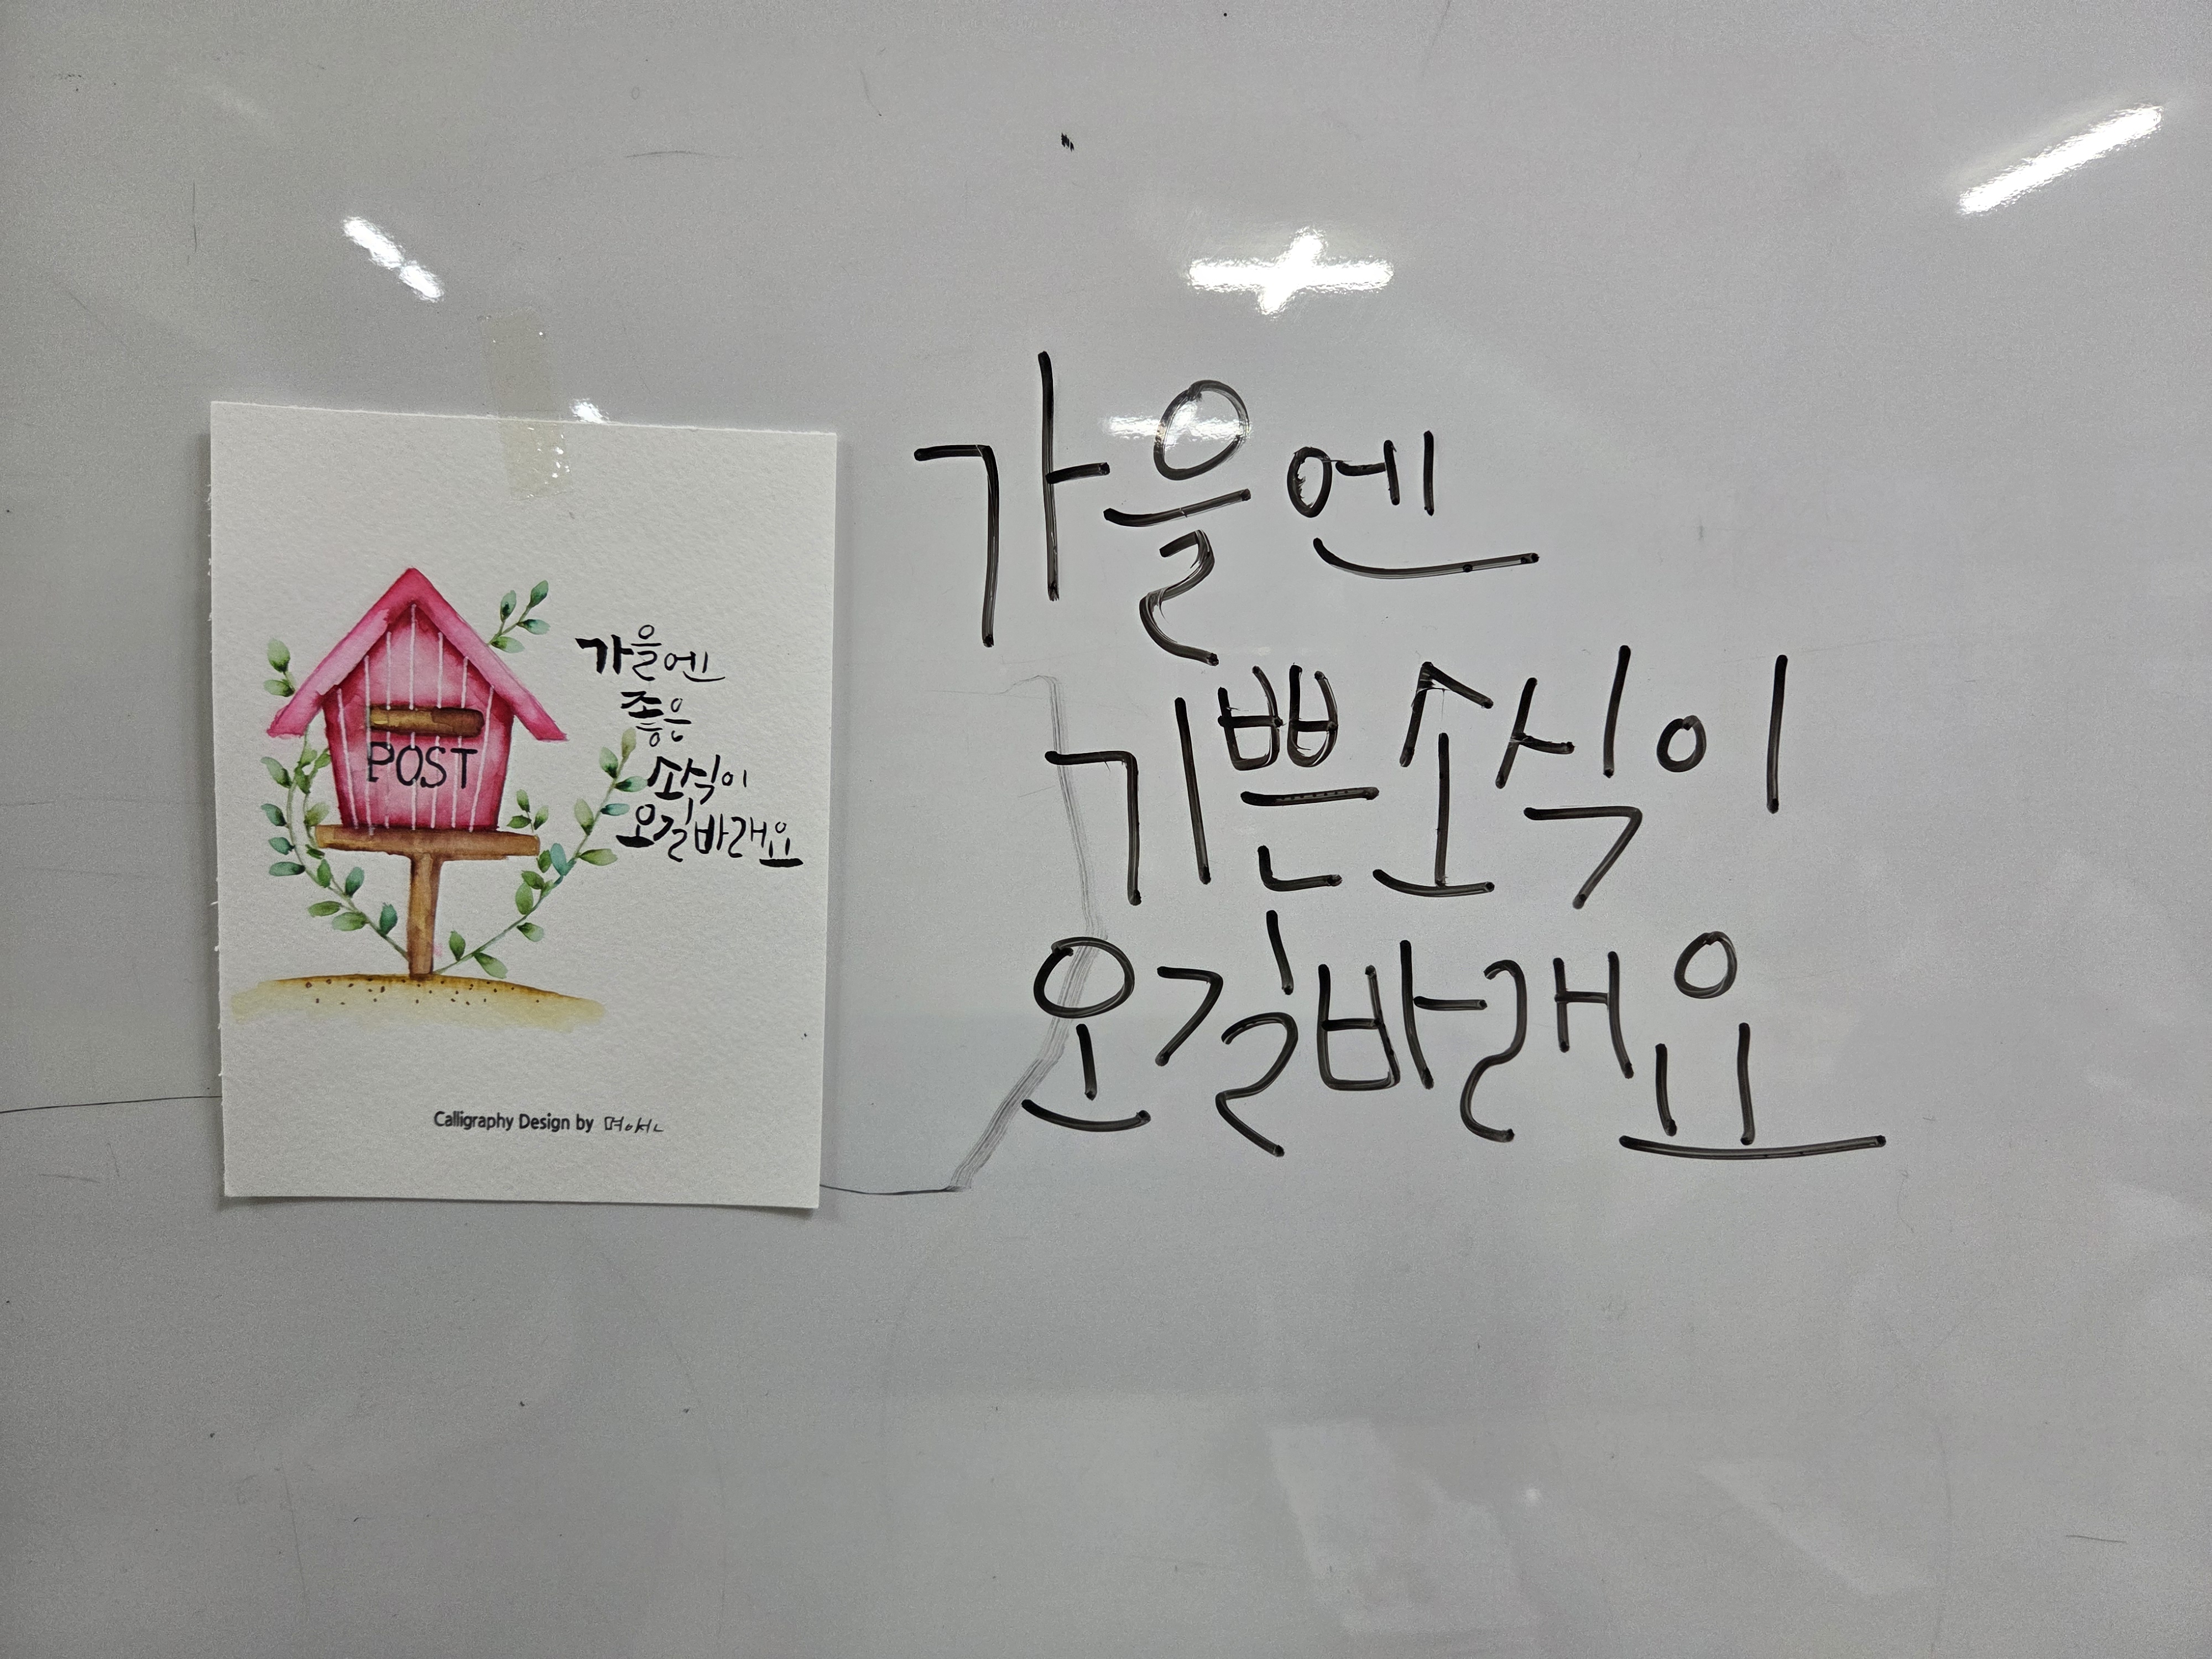 POST
가을엔
좋은
소식이
오길바래요
Calligraphy Design by
가을엔
기쁜소식이
오길바래요